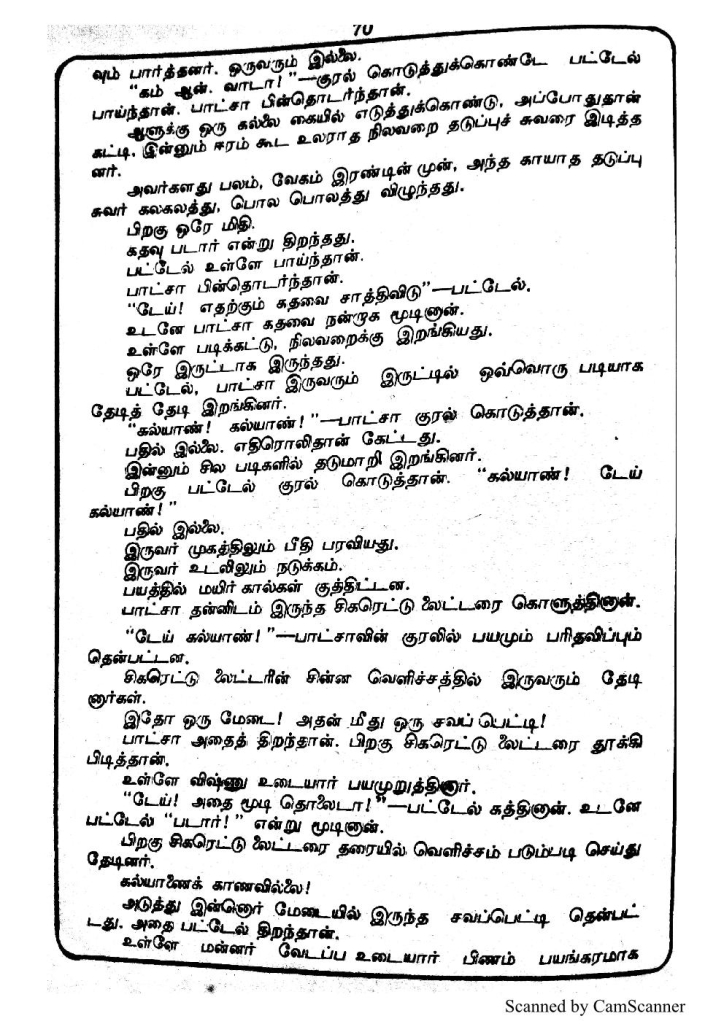 70
வும் பார்த்தனர். ஒருவரும் இல்லை.
"கம் ஆன். வாடா!"—குரல் கொடுத்துக்கொண்டே பட்டேல்
பாய்ந்தான். பாட்சா பின்தொடர்ந்தான்.
ஆளுக்கு ஒரு கல்லை கையில் எடுத்துக்கொண்டு, அப்போதுதான்
கட்டி, இன்னும் ஈரம் கூட உலராத நிலவறை தடுப்புச் சுவரை இடித்த
னர்.
அவர்களது பலம், வேகம் இரண்டின் முன், அந்த காயாத தடுப்பு
சுவர் கலகலத்து, பொல பொலத்து விழுந்தது.
பிறகு ஒரே மிதி.
கதவு படார் என்று திறந்தது.
பட்டேல் உள்ளே பாய்ந்தான்.
பாட்சா பின்தொடர்ந்தான்.
"டேய்! எதற்கும் கதவை சாத்திவிடு"—பட்டேல்.
உடனே பாட்சா கதவை நன்றாக மூடினான்.
உள்ளே படிக்கட்டு, நிலவறைக்கு இறங்கியது.
ஒரே இருட்டாக இருந்தது.
பட்டேல், பாட்சா இருவரும் இருட்டில் ஒவ்வொரு படியாக
தேடித் தேடி இறங்கினர்.
"கல்யாண்! கல்யாண்!"—பாட்சா குரல் கொடுத்தான்.
பதில் இல்லை. எதிரொலிதான் கேட்டது.
இன்னும் சில படிகளில் தடுமாறி இறங்கினர்.
பிறகு பட்டேல் குரல் கொடுத்தான். "கல்யாண்! டேய்
கல்யாண்!"
பதில் இல்லை.
இருவர் முகத்திலும் பீதி பரவியது.
இருவர் உடலிலும் நடுக்கம்.
பயத்தில் மயிர் கால்கள் குத்திட்டன.
பாட்சா தன்னிடம் இருந்த சிகரெட்டு லைட்டரை கொளுத்தினான்.
"டேய் கல்யாண்!"—பாட்சாவின் குரலில் பயமும் பரிதவிப்பும்
தென்பட்டன.
சிகரெட்டு லைட்டரின் சின்ன வெளிச்சத்தில் இருவரும் தேடி
னார்கள்.
இதோ ஒரு மேடை! அதன் மீது ஒரு சவப் பெட்டி!
பாட்சா அதைத் திறந்தான். பிறகு சிகரெட்டு லைட்டரை தூக்கி
பிடித்தான்.
உள்ளே விஷ்ணு உடையார் பயமுறுத்தினார்.
"டேய்! அதை மூடி தொலைடா!"—பட்டேல் கத்தினான். உடனே
பட்டேல் "படார்!" என்று மூடினான்.
பிறகு சிகரெட்டு லைட்டரை தரையில் வெளிச்சம் படும்படி செய்து
தேடினர்.
கல்யாணைக் காணவில்லை!
அடுத்து இன்னொர் மேடையில் இருந்த சவப்பெட்டி தென்பட்
டது. அதை பட்டேல் திறந்தான்.
உள்ளே மன்னர் வேடப்ப உடையார் பிணம் பயங்கரமாக
Scanned by CamScanner